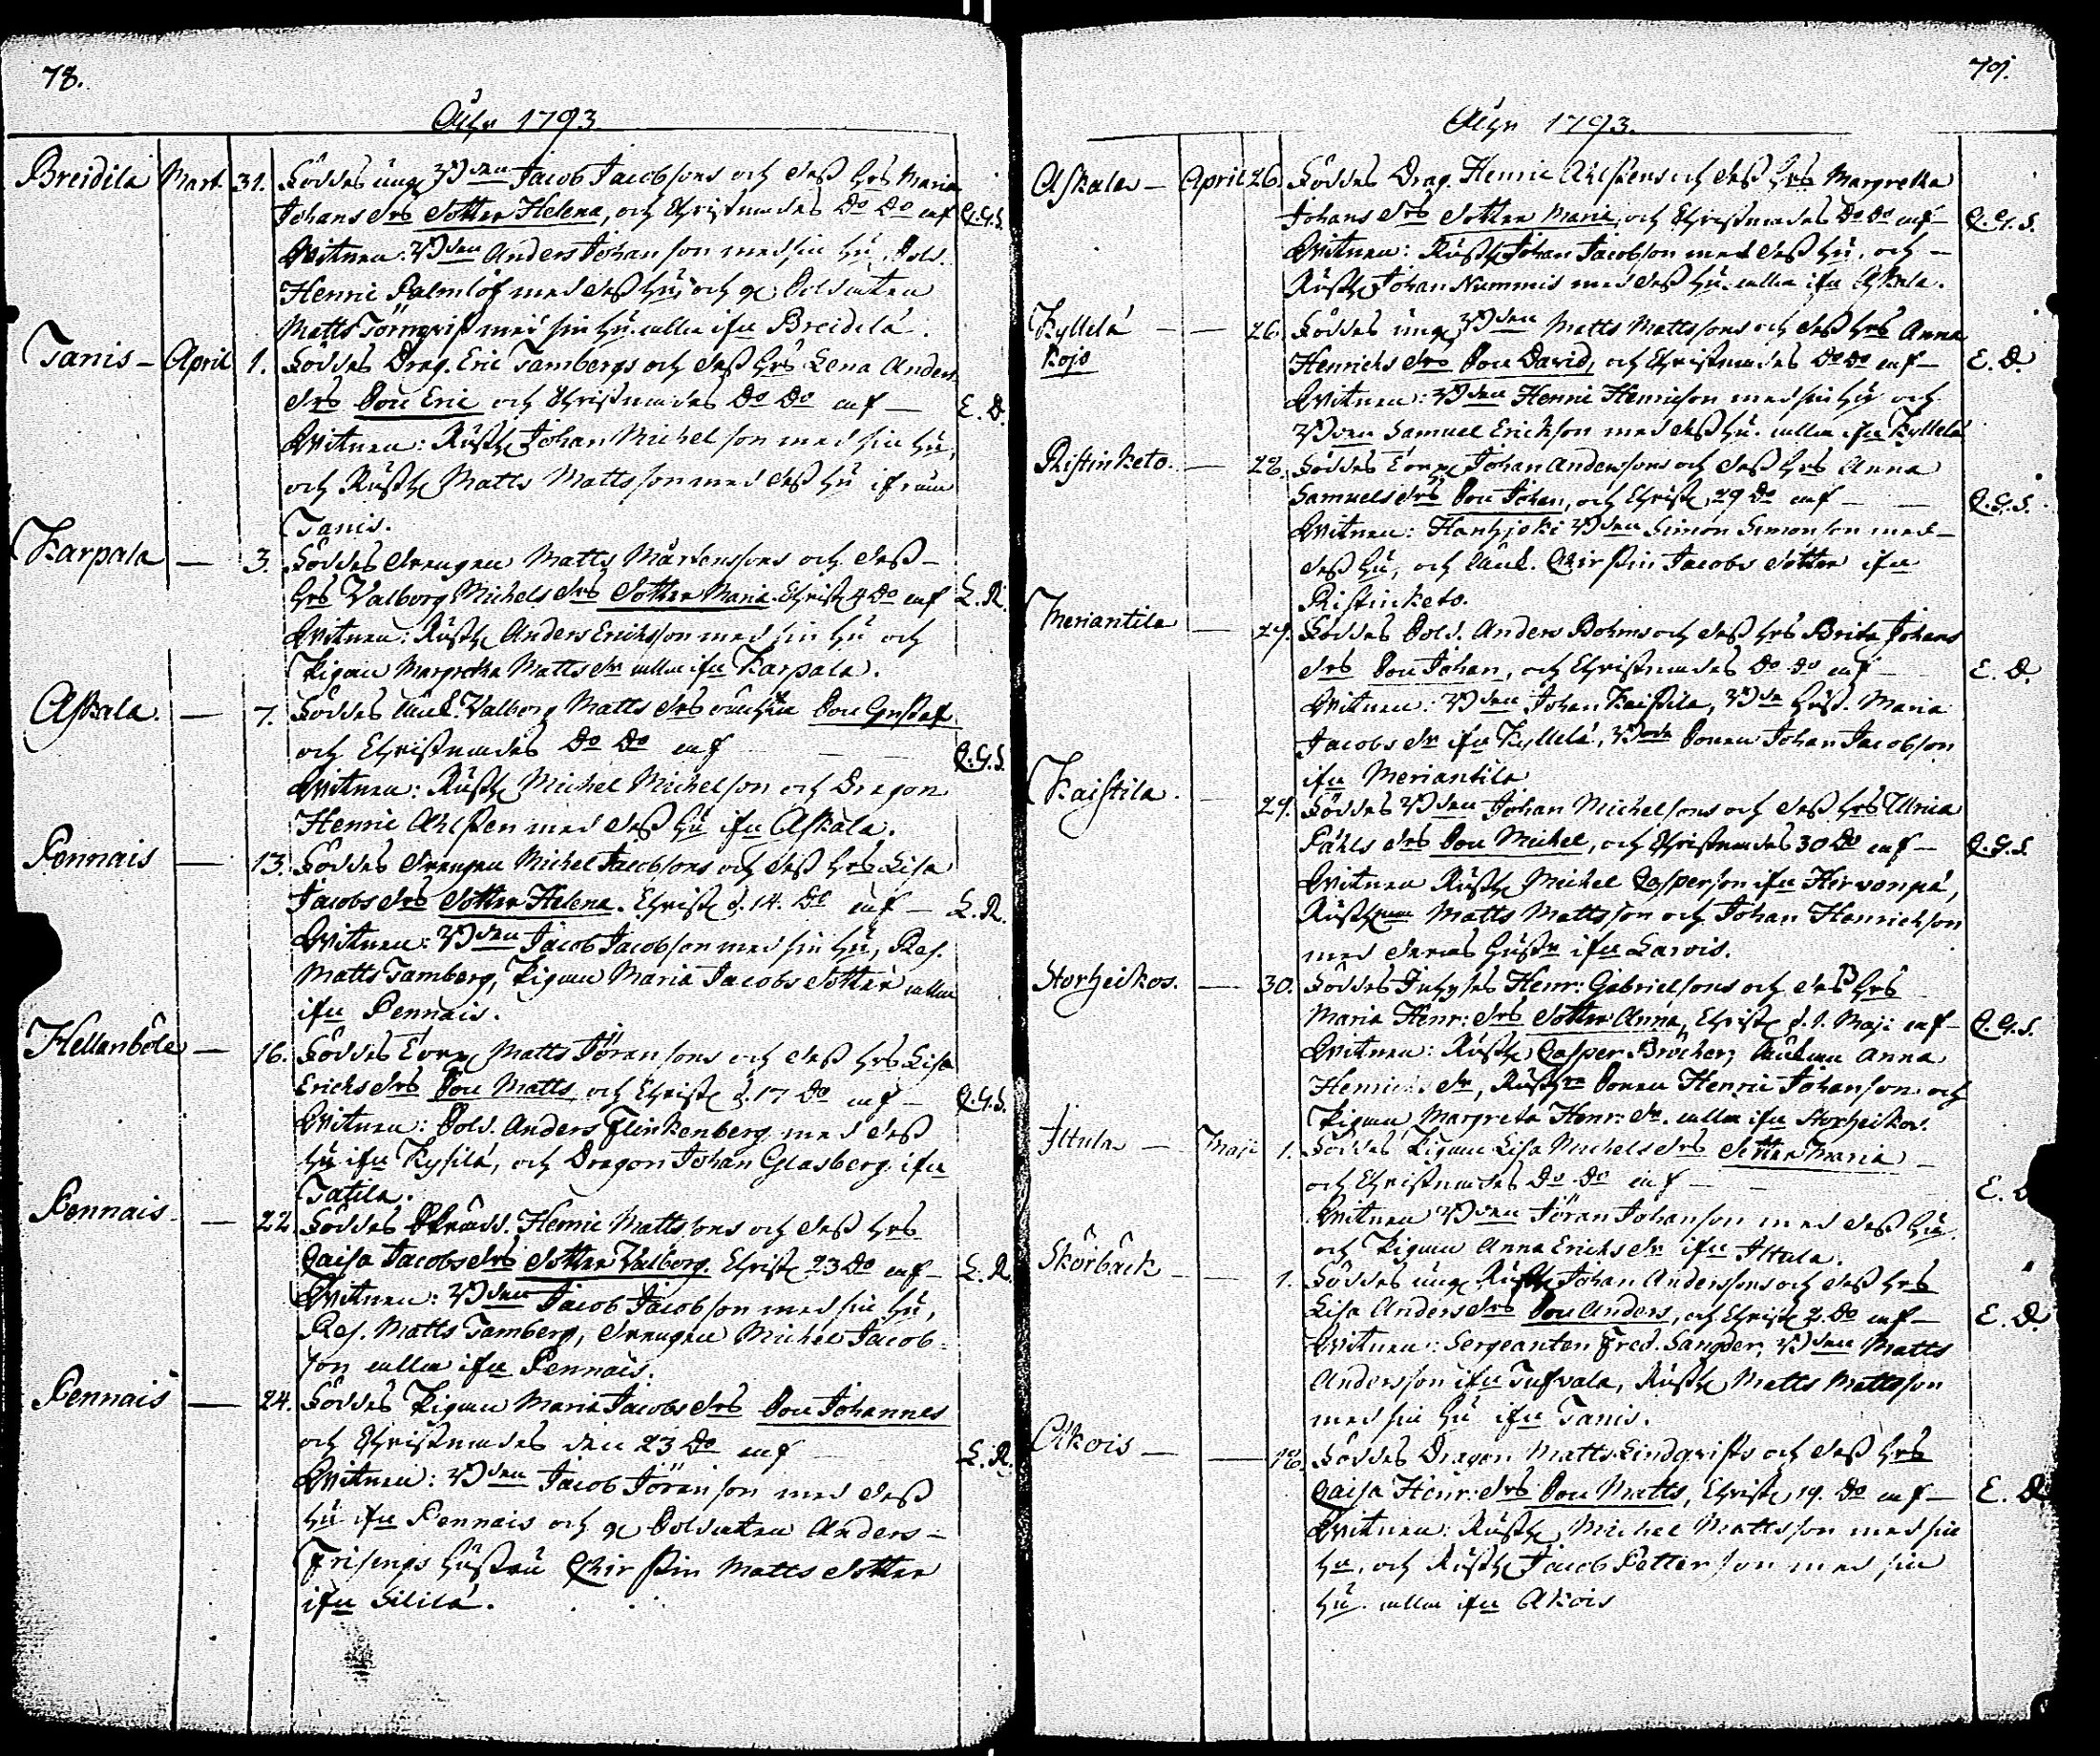 78.
Åhr 1793
Breidila Mart. 31. Föddes ung Bden Jacob Jacobsons och dess hrs Maria
Johans drs dotter Helena, och Christnades Do Do af C.G.S.
Witnen: Bden Anders Johanson med sin hu, Sold.
Henric Palmlöf med dess hu, och gl Soldaten
Matts Törnqvist med sin hu. alla ifrn Breidilä.
Tanis - April 1. Föddes Drag. Eric Tambergs och dess hrs Lena Anders
drs Son Eric och Christnades Do Do af — E. D.
Witnen: Rusth Johan Michelson med sin hu,
och Rusth Matts Mattsson med dess hu ifrån
Tanis.
Karpala — 3. Föddes drengen Matts Mårtensons och dess -
hrs Valborg Michels drs dotter Maria. Christ 4 Do af L. R.
Witnen: Rusth Anders Ericksson med sin hu och
Pigan Margretha Matts dr alla ifrn Karpala.
Askala. — 7. Föddes Enk. Valborg Matts drs oächta Son Gustaf
och Christnades Do Do af C.G.S.
Witnen: Rusth Michel Michelson och Dragon
Henric Ahlsten med dess hu ifrn Askala.
Pennais — 13. Föddes drengen Michel Jacobsons och dess hrs Lisa
Jacobs drs dotter Helena. Christ d. 14. Do af — L. R.
Witnen: Bden Jacob Jacobson med sin hu, Res.
Matts Tamberg, Pigan Maria Jacobs dotter alla
ifrn Pennais.
Hellanböle — 16. Föddes Torp Matts Jöransons och dess hrs Lisa
Ericks drs Son Matts, och Christ d. 17 Do af — C.G.S.
Witnen: Sold. Anders Flinkenberg med dess
hu ifrn Kysilä, och Dragon Johan Glasberg ifrn
Tatila.
Pennais — 22. Föddes Skrädd. Henric Mattsons och dess hrs
Caisa Jacobs drs dotter Valborg. Christ 23 Do af — L. R.
Witnen: Bden Jacob Jacobson med sin hu,
Res. Matts Tamberg, drengen Michel Jacob-
son alla ifrn Pennais.
Pennais — 24. Föddes Pigan Maria Jacobs drs Son Johannes
och Christnades den 23 Do af L. R.
Witnen: Bden Jacob Jöranson med dess
hu ifrn Pennais och gl Soldaten Anders -
Frisengs hustru Chirstin Matts dotter
ifrn Lililä.
79.
Åhr 1793.
Askala — April 26. Föddes Drag. Henric Ahlstens och dess hrs Margretha
Johans drs dotter Maria, och Christnades Do Do af — C.G.S.
Witnen: Rusth Johan Jacobson med dess hu, och -
Rusth Johan Nummis med dess hu. alla ifrn Askala.
Kyllelä — — 26. Föddes ung Bden Matts Mattssons och dess hrs Anna
Kojo Henrichs drs Son David, och Christnades Do Do af — E. D.
Witnen: Bden Henric Henricson med sin hu och
Bden Samuel Erickson med dess hu. alla ifrn Kyllelä
Ristinketo. — 28. Föddes Torp Johan Anderssons och dess hrs Anna
Samuels drs Son Johan, och Christ 29 Do af — C.G.S.
Witnen: Hanhjoki Bden Simon Simonson med -
dess hu, och Enk. Chirstin Jacobs dotter ifrn
Ristinketo.
Meriantila — 29. Föddes Sold. Anders Bohms och dess hrs Brita Johans
drs Son Johan, och Christnades Do Do af E. D.
Witnen: Bden Johan Kaistila, Bde hust. Maria
Jacobs dr ifrn Kyllelä, Bonde Sonen Johan Jacobson
ifrn Meriantila
Kaistila. — 29. Föddes Bden Johan Michelsons och dess hrs Ulrica
Påhls drs Son Michel, och Christnades 30 Do af — C.G.S.
Witnen Rusth Michel Casperson ifrn Hirvonpä,
Rusthne Matts Mattsson och Johan Henrichson
med deras hustr ifrn Larvis.
Storheikos. — 30. Föddes Inhyses Henr: Gabrielsons och dess hrs
Maria Henr: drs dotter Anna, Christ d. 1. Maji af — C.G.S.
Witnen: Rusth Casper Bröcher, Enkan Anna
Henrichs dr, Rusth Sonen Henric Johanson och
Pigan Margreta Henr: dr. alla ifrn Storheikos.
Ittula — Maji 1. Föddes Pigan Lisa Michels drs dotter Maria -
och Christnades Do Do af — E. D.
Witnen Bden Jöran Johanson med dess hu.
och Pigan Anna Ericks dr ifrn Ittula.
Skörbäck — — 1. Föddes ung Rusth Johan Anderssons och dess hrs
Lisa Anders drs Son Anders, och Christ 2. Do af — E. D.
Witnen: Sergeanten Fred. Sangder, Bden Matts
Andersson ifrn Tufvala, Rusth Matts Mattsson
med sin hu ifrn Tanis.
Akois — — 18. Föddes Dragon Matts Lindqvists och dess hrs
Caisa Henr: drs Son Matts, Christ 19. Do af — E. D.
Witnen: Rusth Michel Mattsson med sin
hu, och Rusth Jacob Petterson med sin
hu. alla ifrn Akois